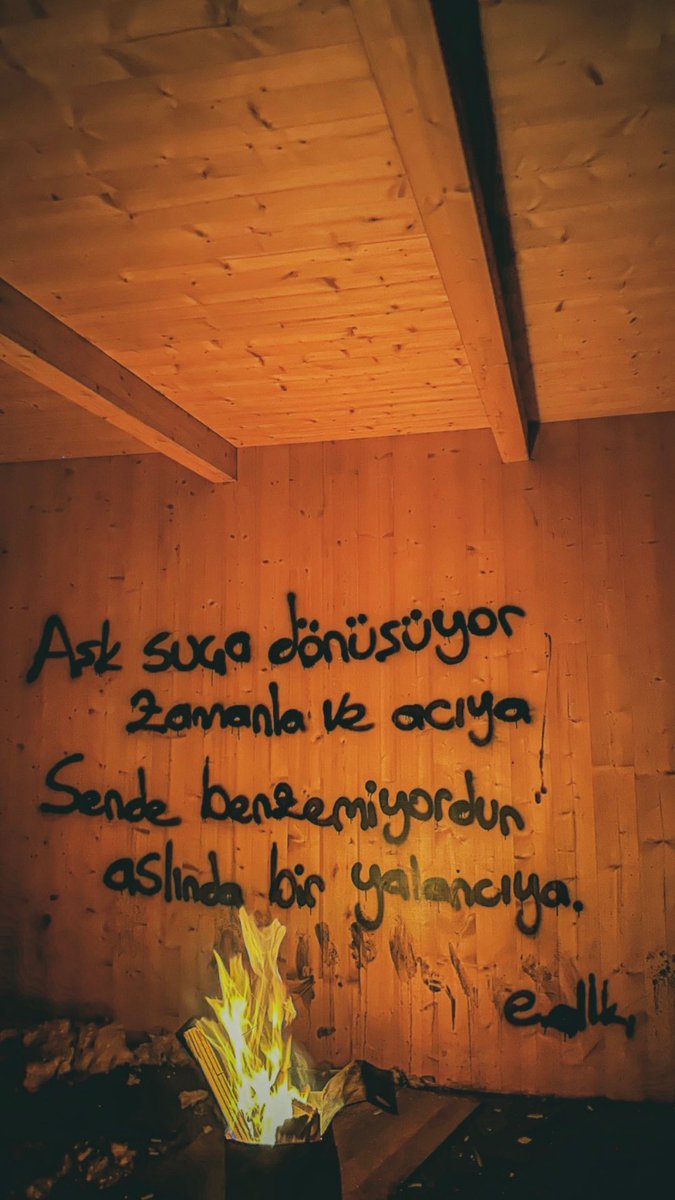 Ask suça dönüsüyor
zamanla ve acıya
Sende benzemiyordun
aslında bir yalancıya.